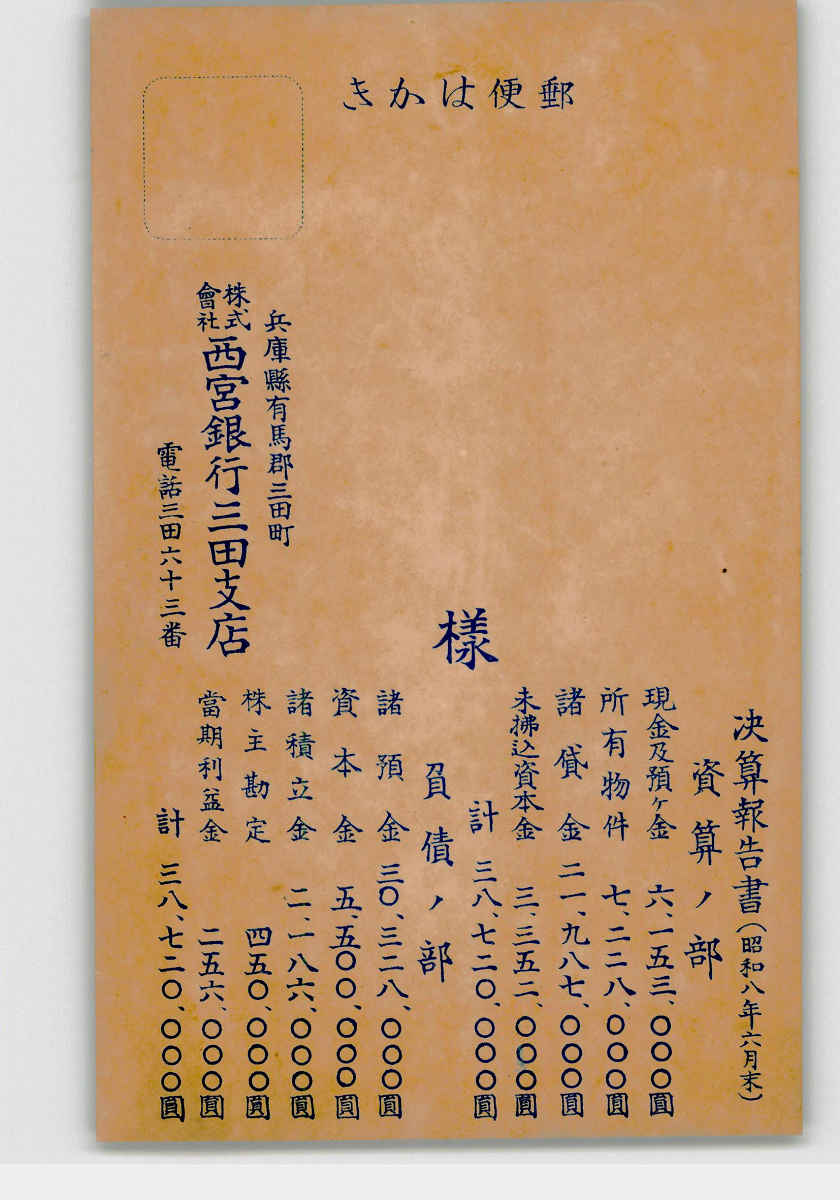 郵便はかき
様
兵庫縣有馬郡三田町
株式會社 西宮銀行三田支店
電話三田六十三番
決算報告書（昭和八年六月末）
資算ノ部
現金及預ケ金 六、一五三、〇〇〇圓
所有物件 七、二二八、〇〇〇圓
諸貸金 二一、九八七、〇〇〇圓
未拂込資本金 三、三五二、〇〇〇圓
計 三八、七二〇、〇〇〇圓
負債ノ部
諸預金 三〇、三二八、〇〇〇圓
資本金 五、五〇〇、〇〇〇圓
諸積立金 二、一八六、〇〇〇圓
株主勘定 四五〇、〇〇〇圓
當期利益金 二五六、〇〇〇圓
計 三八、七二〇、〇〇〇圓